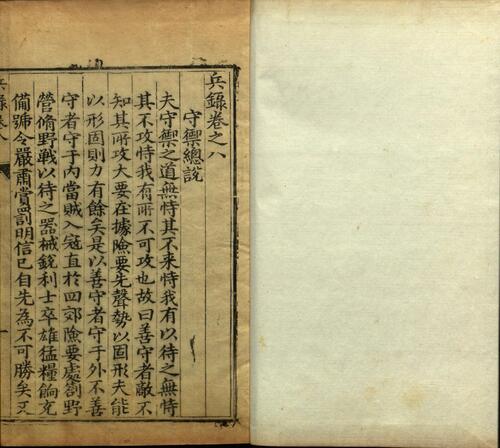 兵錄卷之八
守禦總說
夫守禦之道無恃其不来恃我有以待之無恃
其不攻恃我有所不可攻也故曰善守者敵不
知其所攻大要在據險要先聲勢以固形夫能
以形固則力有餘矣是以善守者守于外不善
守者守于内當賊入寇直於四郊險要處劄野
營脩野戰以待之器械銳利士卒雄猛糧餉充
備號令嚴肅賞罰明信已自先為不可勝矣又
兵錄卷八